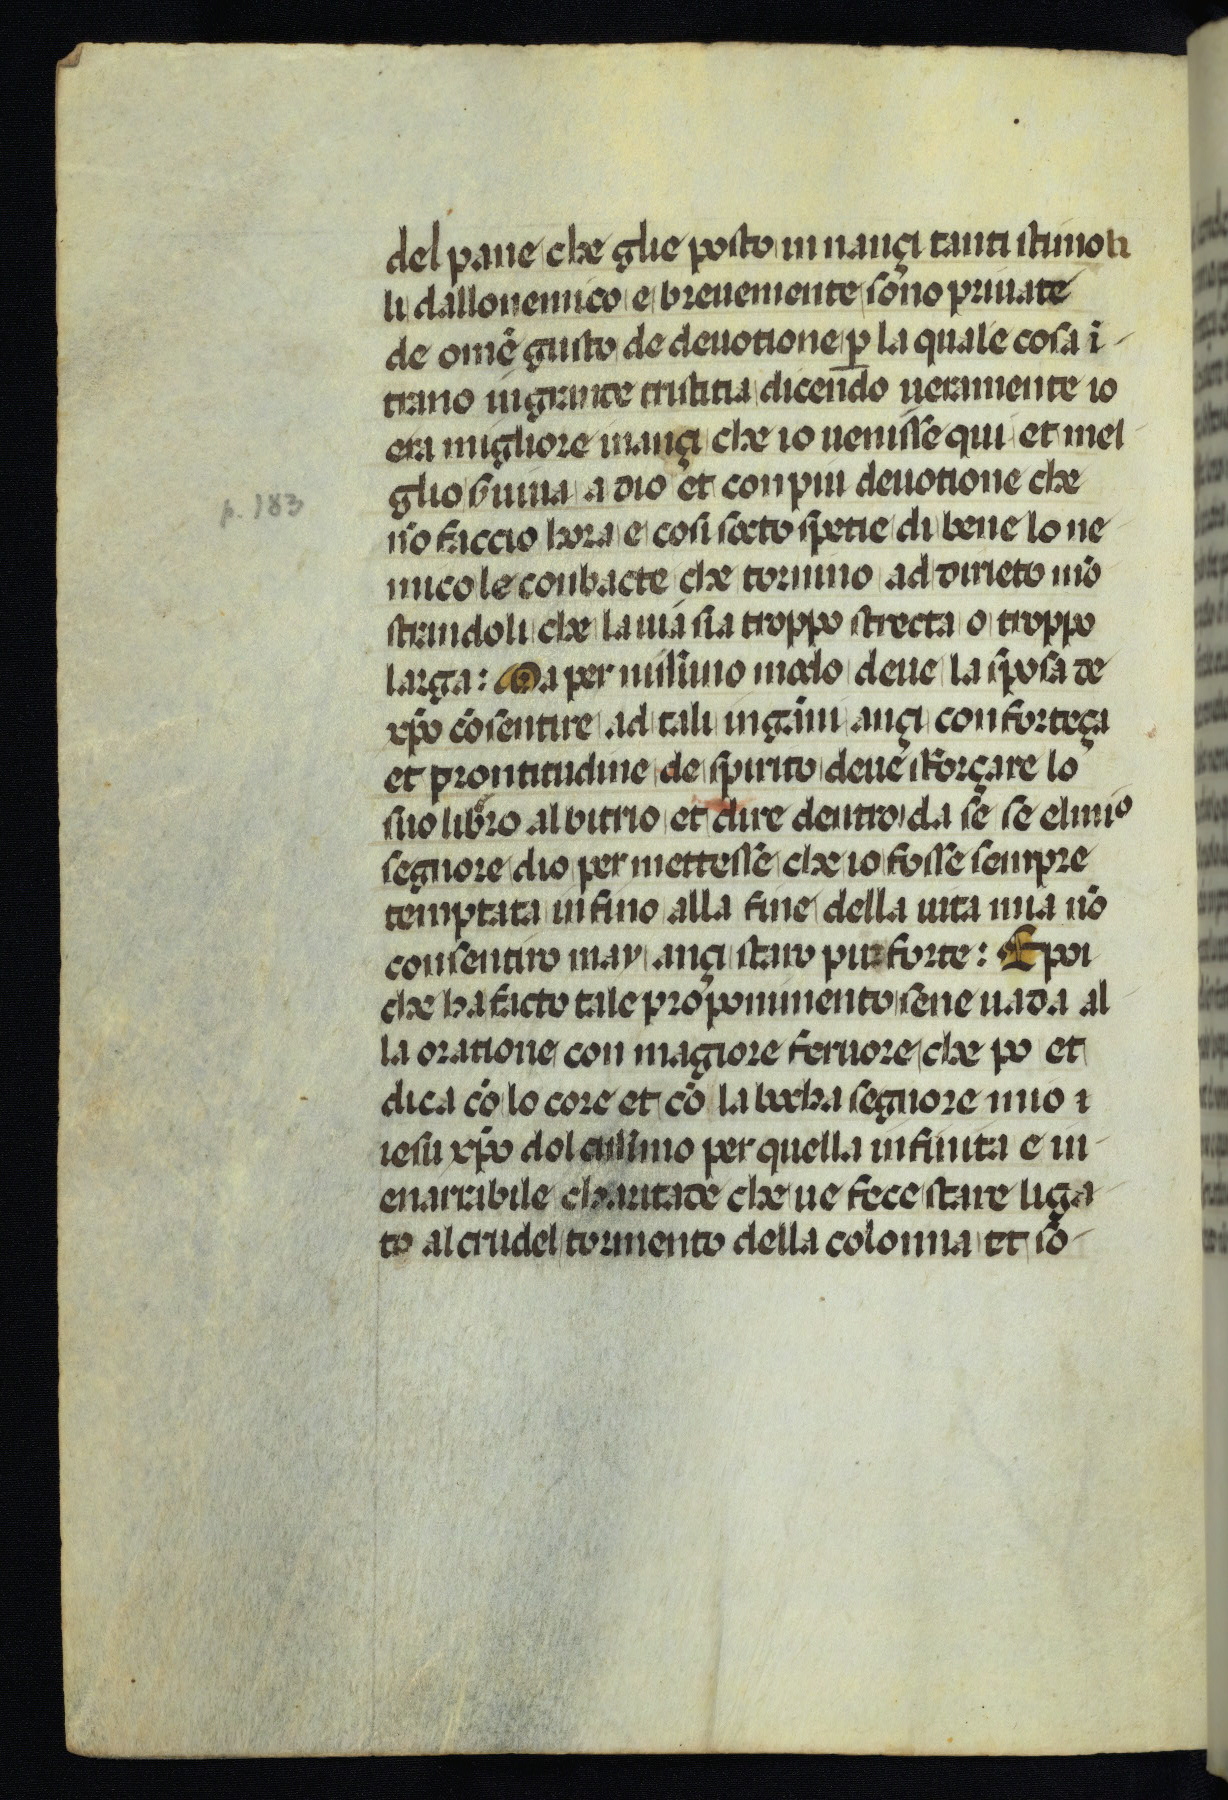 del pane che glie posto in nançi tanti stimoli
li dallo nemico e brevemente sono private
de omē gusto de devotione p̱ la quale cosa ī
trano in grande tristitia dicendo veramente io
era migliore inançi che io venisse qui et mel
glio s̄viva a dio et con piu devotione che
nō faccio hora e cosi socto spetie di bene lo ne
mico le conbacte che tornino ad dirieto mō
strandoli che la via sia troppo strecta o troppo
larga: Ma per nissuno modo deve la sposa de
xp̄o cōsentire ad tali ingāni ançi con forteça
et prontitudine de spirito deve isforçare lo
suo libro albitrio et dire dentro da se se el mio
segnore dio permettesse che io fosse sempre
temptata infino alla fine della vita mia nō
consentiro may ançi staro pur forte: E poi
che ha facto tale proponimento sene vada al
la oratione con magiore fervore che po et
dica cō lo core et cō la bocha segnore mio i
iesu xp̄o dolcissimo per quella infinita e in
enarribile charitade che ve fece stare liga
to al crudel tormento della colonna et sō
p. 183